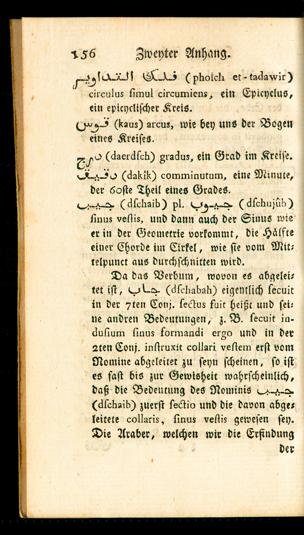 156 Zweyter Anhang.
فلك التداوير (pholch et-tadawir)
circulus simul circumiens, ein Epicyclus,
ein epicyclischer Kreis.
قوس (kaus) arcus, wie bey uns der Bogen
eines Kreises.
درج (daerdsch) gradus, ein Grad im Kreise.
دقيق (dakik) comminutum, eine Minute,
der 60ste Theil eines Grades.
جيب (dschaib) pl. جيوب (dschujûb)
sinus vestis, und dann auch der Sinus wie
er in der Geometrie vorkommt, die Hälfte
einer Chorde im Cirkel, wie sie vom Mit-
telpunct aus durchschnitten wird.
Da das Verbum, wovon es abgelei-
tet ist, جاب (dschabah) eigentlich secuit
in der 7ten Conj. sectus fuit heißt und sei-
ne andren Bedeutungen, z. B. secuit in-
dusium sinus formandi ergo und in der
2ten Conj. instruxit collari vestem erst vom
Nomine abgeleitet zu seyn scheinen, so ist
es fast bis zur Gewisheit wahrscheinlich,
daß die Bedeutung des Nominis جيب
(dschaib) zuerst sectio und die davon abge-
leitete collaris, sinus vestis gewesen sey.
Die Araber, welchen wir die Erfindung
der